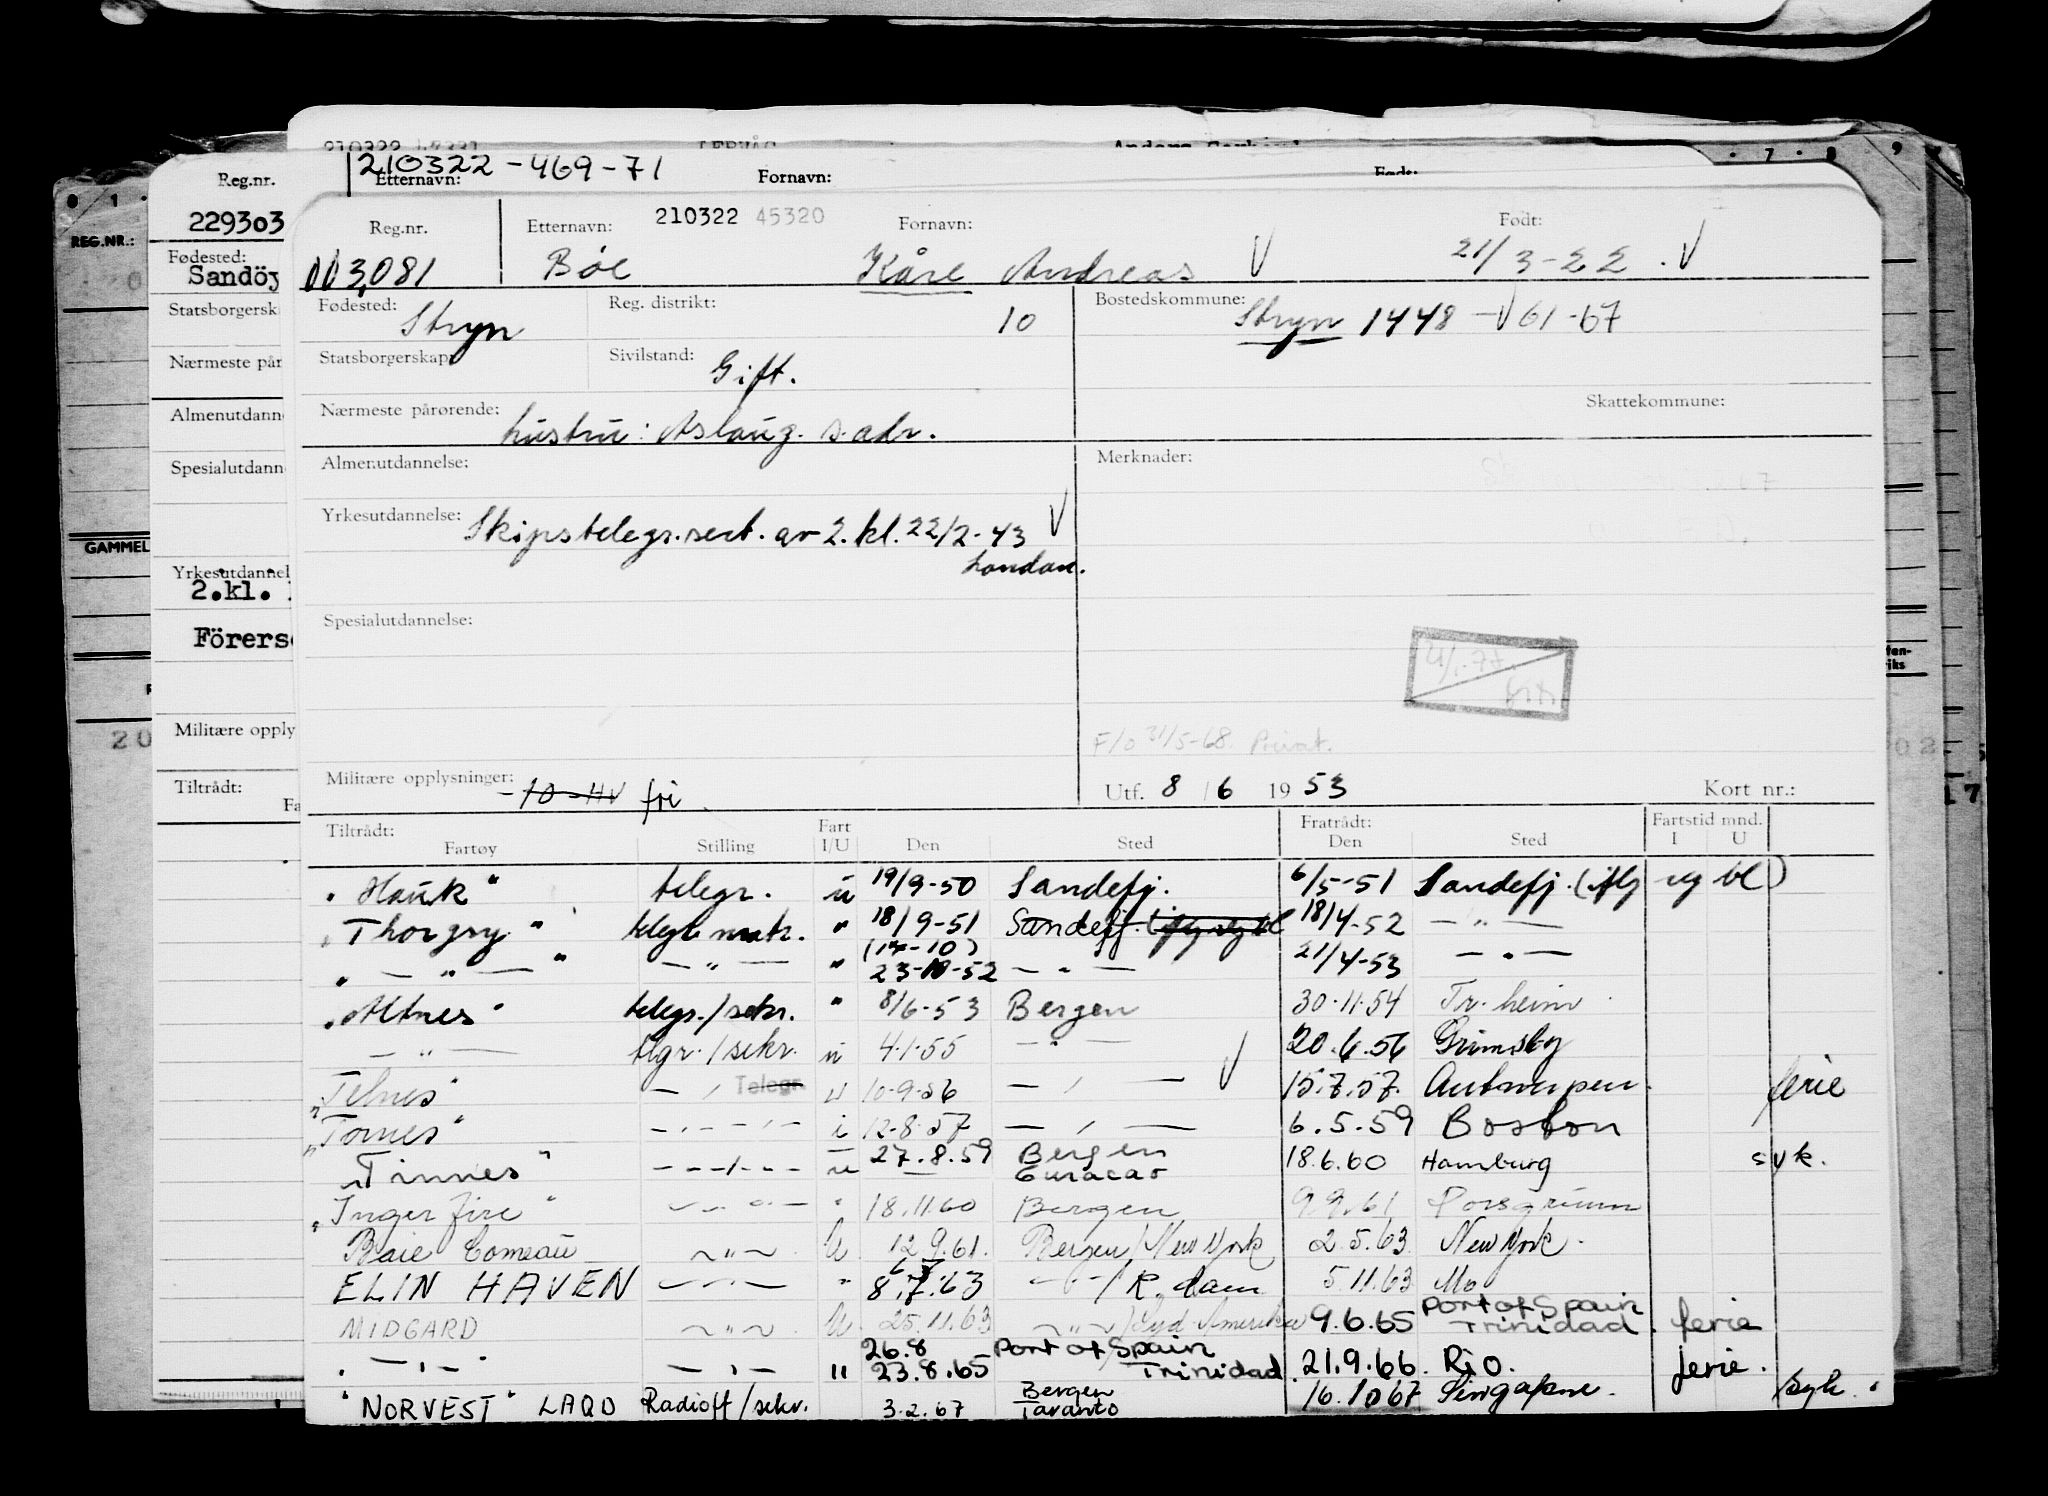 210322-469-71
Reg.nr. Etternavn: Fornavn: Født:
229303
Fødested:
Statsborgersk
Nærmeste pår
Almenutdann
Spesialutdann
Yrkesutdannel
2.kl.
Förers
Militære opply
Tiltrådt:
REG.NR.:
GAMMEL
Reg.nr. Etternavn: 210322 45320 Fornavn: Født:
3081 Böe Kåre Andreas V 21/3-22. V
Fødested: Stryn Reg. distrikt: 10 Bostedskommune: Stryn 1448 - V 61-67
Statsborgerskap: Sivilstand: Gift.
Nærmeste pårørende: hustru: Aslaug. s.adr. Skattekommune:
Almenutdannelse: Merknader:
Yrkesutdannelse: Skipstelegr.sert. av 2. kl. 22/2-43 V
London.
Spesialutdannelse:
F/o 31/5-68. Privat.
Militære opplysninger: - 10-HV fri Utf. 8/6 1953 Kort nr.:
Tiltrådt: Fart Fratrådt: Fartstid mnd.
Fartøy Stilling I/U Den Sted Den Sted I U
"Hauk" telegr. u 19/9-50 Sandefj. 6/5-51 Sandefj.
"Thorgry" " 18/9-51 Sandefj. 18/4-52 — " —
(17-10)
" — " — " — " — " 23-10-52 — " — 21/4-53 — " —
"Altnes" telegr./sekr. " 8/6-53 Bergen 30-11-54 Tr.heim
— " — tlgr./sekr. u 4.1.55 — " — 20.6.56 Grimsby
"Telnes" — , — Telegr. u 10-9-56 — , — V 15.7.57. Antwerpen. ferie
"Tornes" — . — — . — i 12-8-57 — , — 6.5.59 Boston
"Tinnes" — — . — — u 27.8.59 Bergen Curacao 18.6.60 Hamburg syk.
"Ingerfire" — " — " 18.11.60 Bergen 9.9.61 Porsgrunn
Baie Comeau — " — U 12.9.61. Bergen/New York 2.5.63 New York.
ELIN HAVEN — " — " 8.7.63 — " — / R.dam 5.11.63 Mo
MIDGARD — " — U 25.11.63 — " — /Syd Amerika 9.6.65 Port of Spain Trinidad. ferie
26.8
" — " — " — , — u 23.8.65 Port of Spain Trinidad 21.9.66. Rio. ferie.
"NORVEST" LAQD Radioff/sekr. 3.2.67 Bergen Taranto 16.10 67 Singapore. /syk.